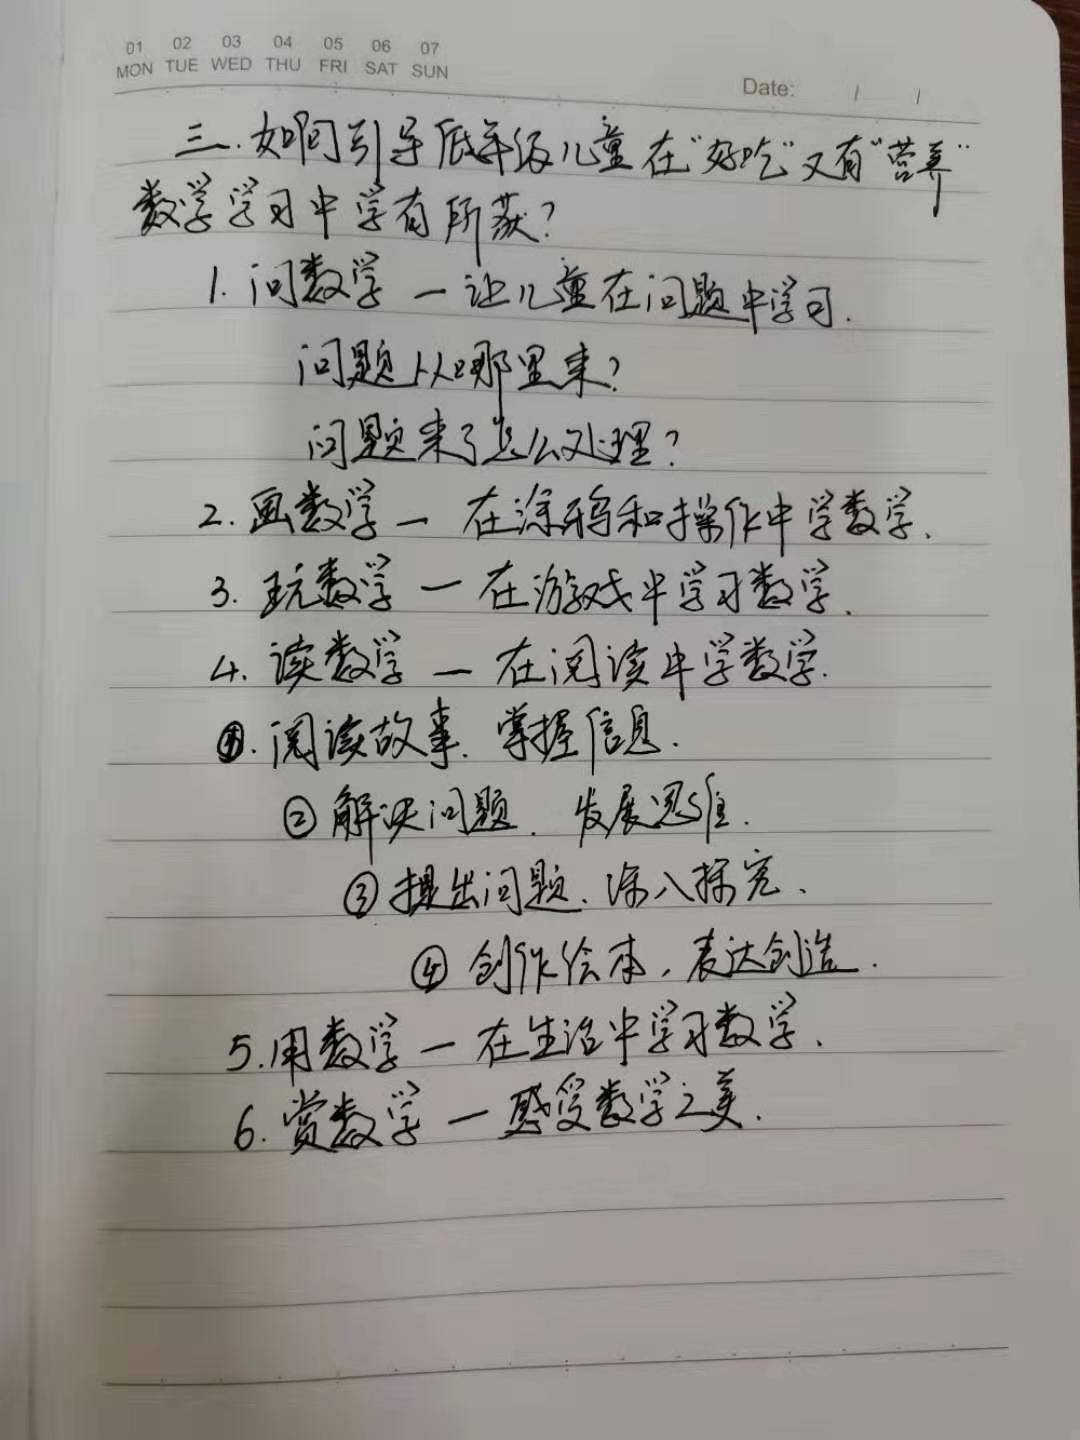 01 02 03 04 05 06 07
MON TUE WED THU FRI SAT SUN
Date: / /
三.如何引导低年级儿童在"好吃"又有"营养"
数学学习中学有所获?
1. 问数学 — 让儿童在问题中学习.
问题从哪里来?
问题来了怎么处理?
2. 画数学 — 在涂鸦和操作中学数学.
3. 玩数学 — 在游戏中学习数学.
4. 读数学 — 在阅读中学数学.
①. 阅读故事. 掌握信息.
② 解决问题. 发展思维.
③ 提出问题. 深入探究.
④ 创作绘本, 表达创造.
5. 用数学 — 在生活中学习数学.
6. 赏数学 — 感受数学之美.